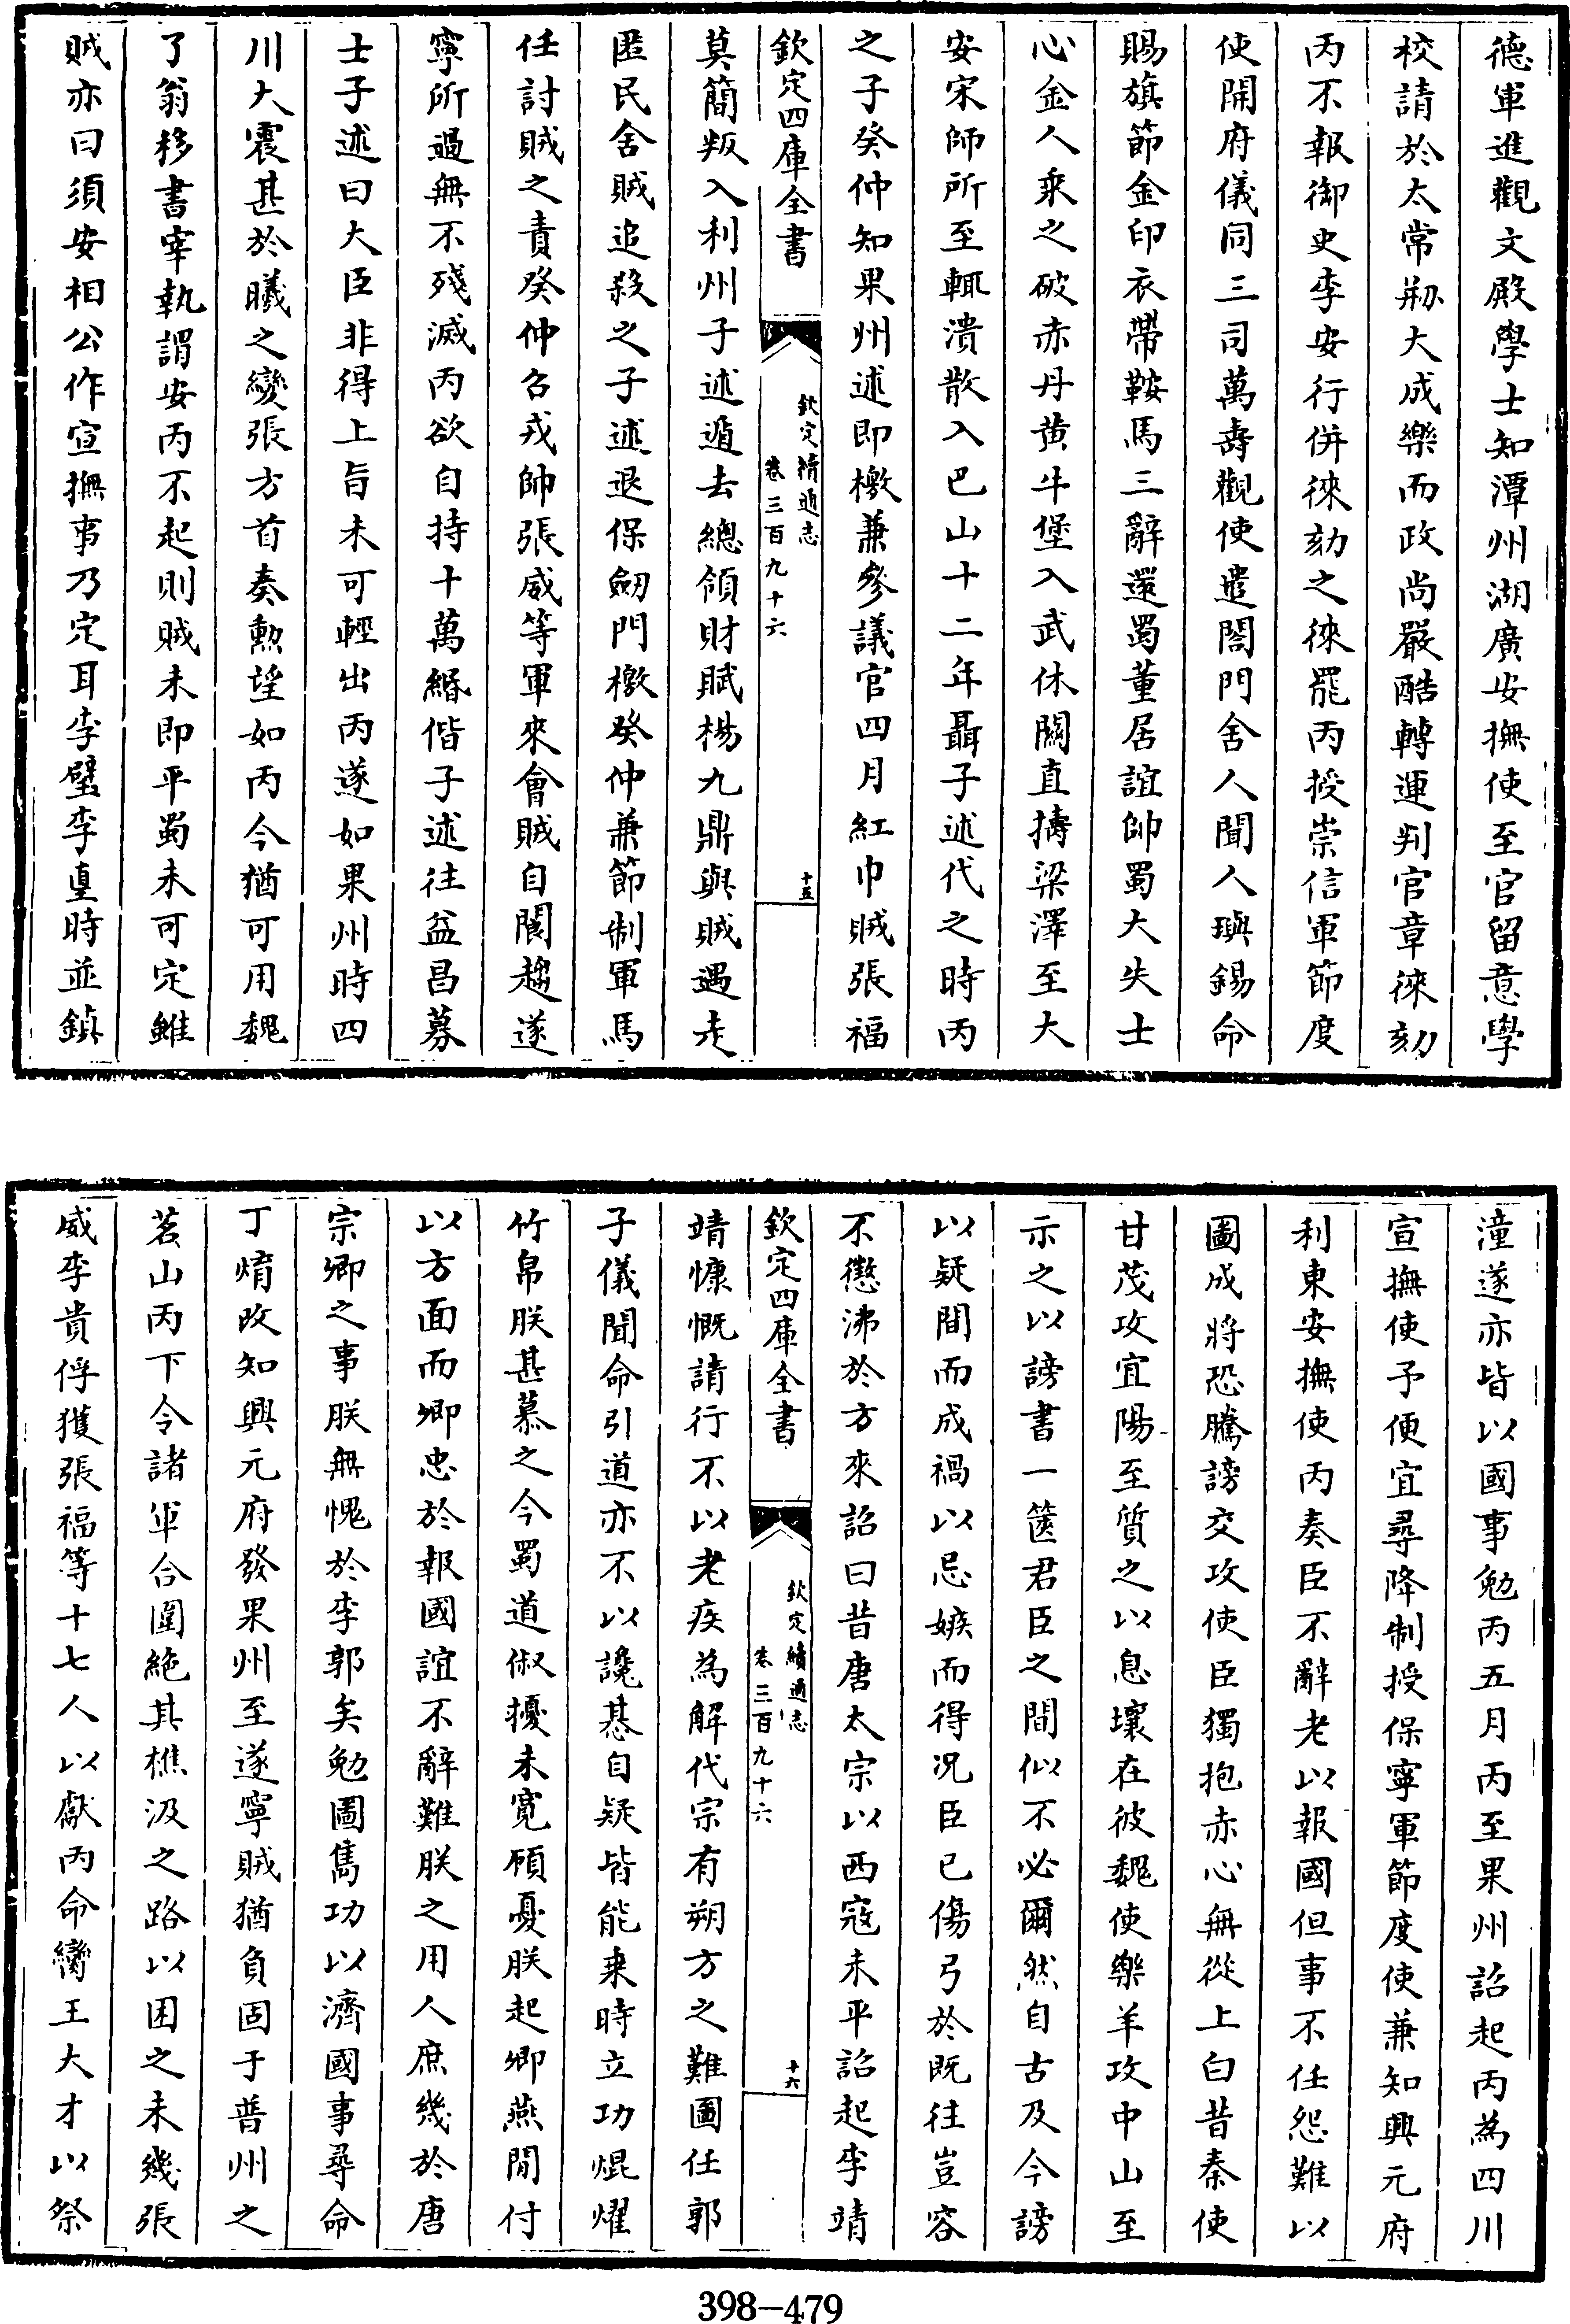 德軍進觀文殿學士知潭州湖廣安撫使至官留意學
校請於太常刱大成樂而政尚嚴酷轉運判官章徠刻
丙不報御史李安行併徠劾之徠罷丙授崇信軍節度
使開府儀同三司萬壽觀使遣閤門舍人聞人璵錫命
賜旗節金印衣帶鞍馬三辭還蜀董居誼帥蜀大失士
心金人乘之破赤丹黄牛堡入武休關直擣梁澤至大
安宋師所至輒潰散入巴山十二年聶子述代之時丙
之子癸仲知果州述即檄兼參議官四月紅巾賊張福
欽定四庫全書
欽定續通志
卷三百九十六
十五
莫簡叛入利州子述遁去總領財賦楊九鼎與賊遇走
匿民舍賊追殺之子述退保劒門檄癸仲兼節制軍馬
任討賊之責癸仲召戎帥張威等軍來會賊自閬趨遂
寧所過無不殘滅丙欲自持十萬緡偕子述往益昌募
士子述曰大臣非得上旨未可輕出丙遂如果州時四
川大震甚於曦之變張方首奏勲望如丙今猶可用魏
了翁移書宰執謂安丙不起則賊未即平蜀未可定雖
賊亦曰須安相公作宣撫事乃定耳李壁李𡌴時並鎮
潼遂亦皆以國事勉丙五月丙至果州詔起丙為四川
宣撫使予便宜尋降制授保寧軍節度使兼知興元府
利東安撫使丙奏臣不辭老以報國但事不任怨難以
圖成將恐騰謗交攻使臣獨抱赤心無從上白昔秦使
甘茂攻宜陽至質之以息壤在彼魏使樂羊攻中山至
示之以謗書一篋君臣之間似不必爾然自古及今謗
以疑間而成禍以忌嫉而得况臣已傷弓於既往豈容
不懲沸於方來詔曰昔唐太宗以西寇未平詔起李靖
欽定四庫全書
欽定續通志
卷三百九十六
十六
靖慷慨請行不以老疾為解代宗有朔方之難圖任郭
子儀聞命引道亦不以讒惎自疑皆能乘時立功焜燿
竹帛朕甚慕之今蜀道俶擾未寛顧憂朕起卿燕閒付
以方面而卿忠於報國誼不辭難朕之用人庶幾於唐
宗卿之事朕無愧於李郭矣勉圖雋功以濟國事尋命
丁焴改知興元府發果州至遂寧賊猶負固于普州之
茗山丙下令諸軍合圍絶其樵汲之路以困之未幾張
威李貴俘獲張福等十七人以獻丙命臠王大才以祭
398-479